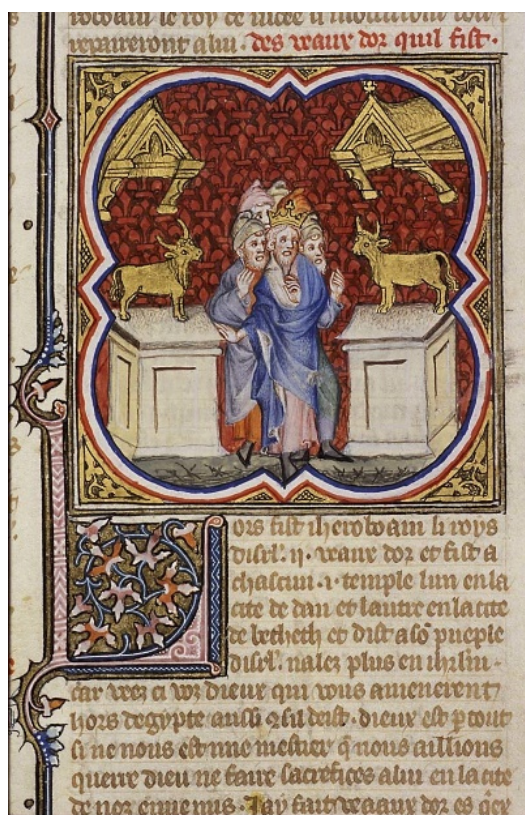 roboam le roy de iudee il
repaireront alui . des veaux dor quil fist .
Lors fist iheroboam li roys
disrl'. ij. veaux dor et fist a
chascun .i. temple lun en la
cite de dan et lautre en la cite
de betheth et dist a sō pueple
disrl'. nalez plus en ihrlm .
car veez ci vz dieux qui vous amenerent
hors degypte ausi dist . dieux est p tout
si ne nous est mie mestier q̄ nous aillions
querre dieu ne faire sacrefices alui en la cite
de noz ennemis . Jay fait veaux dor es